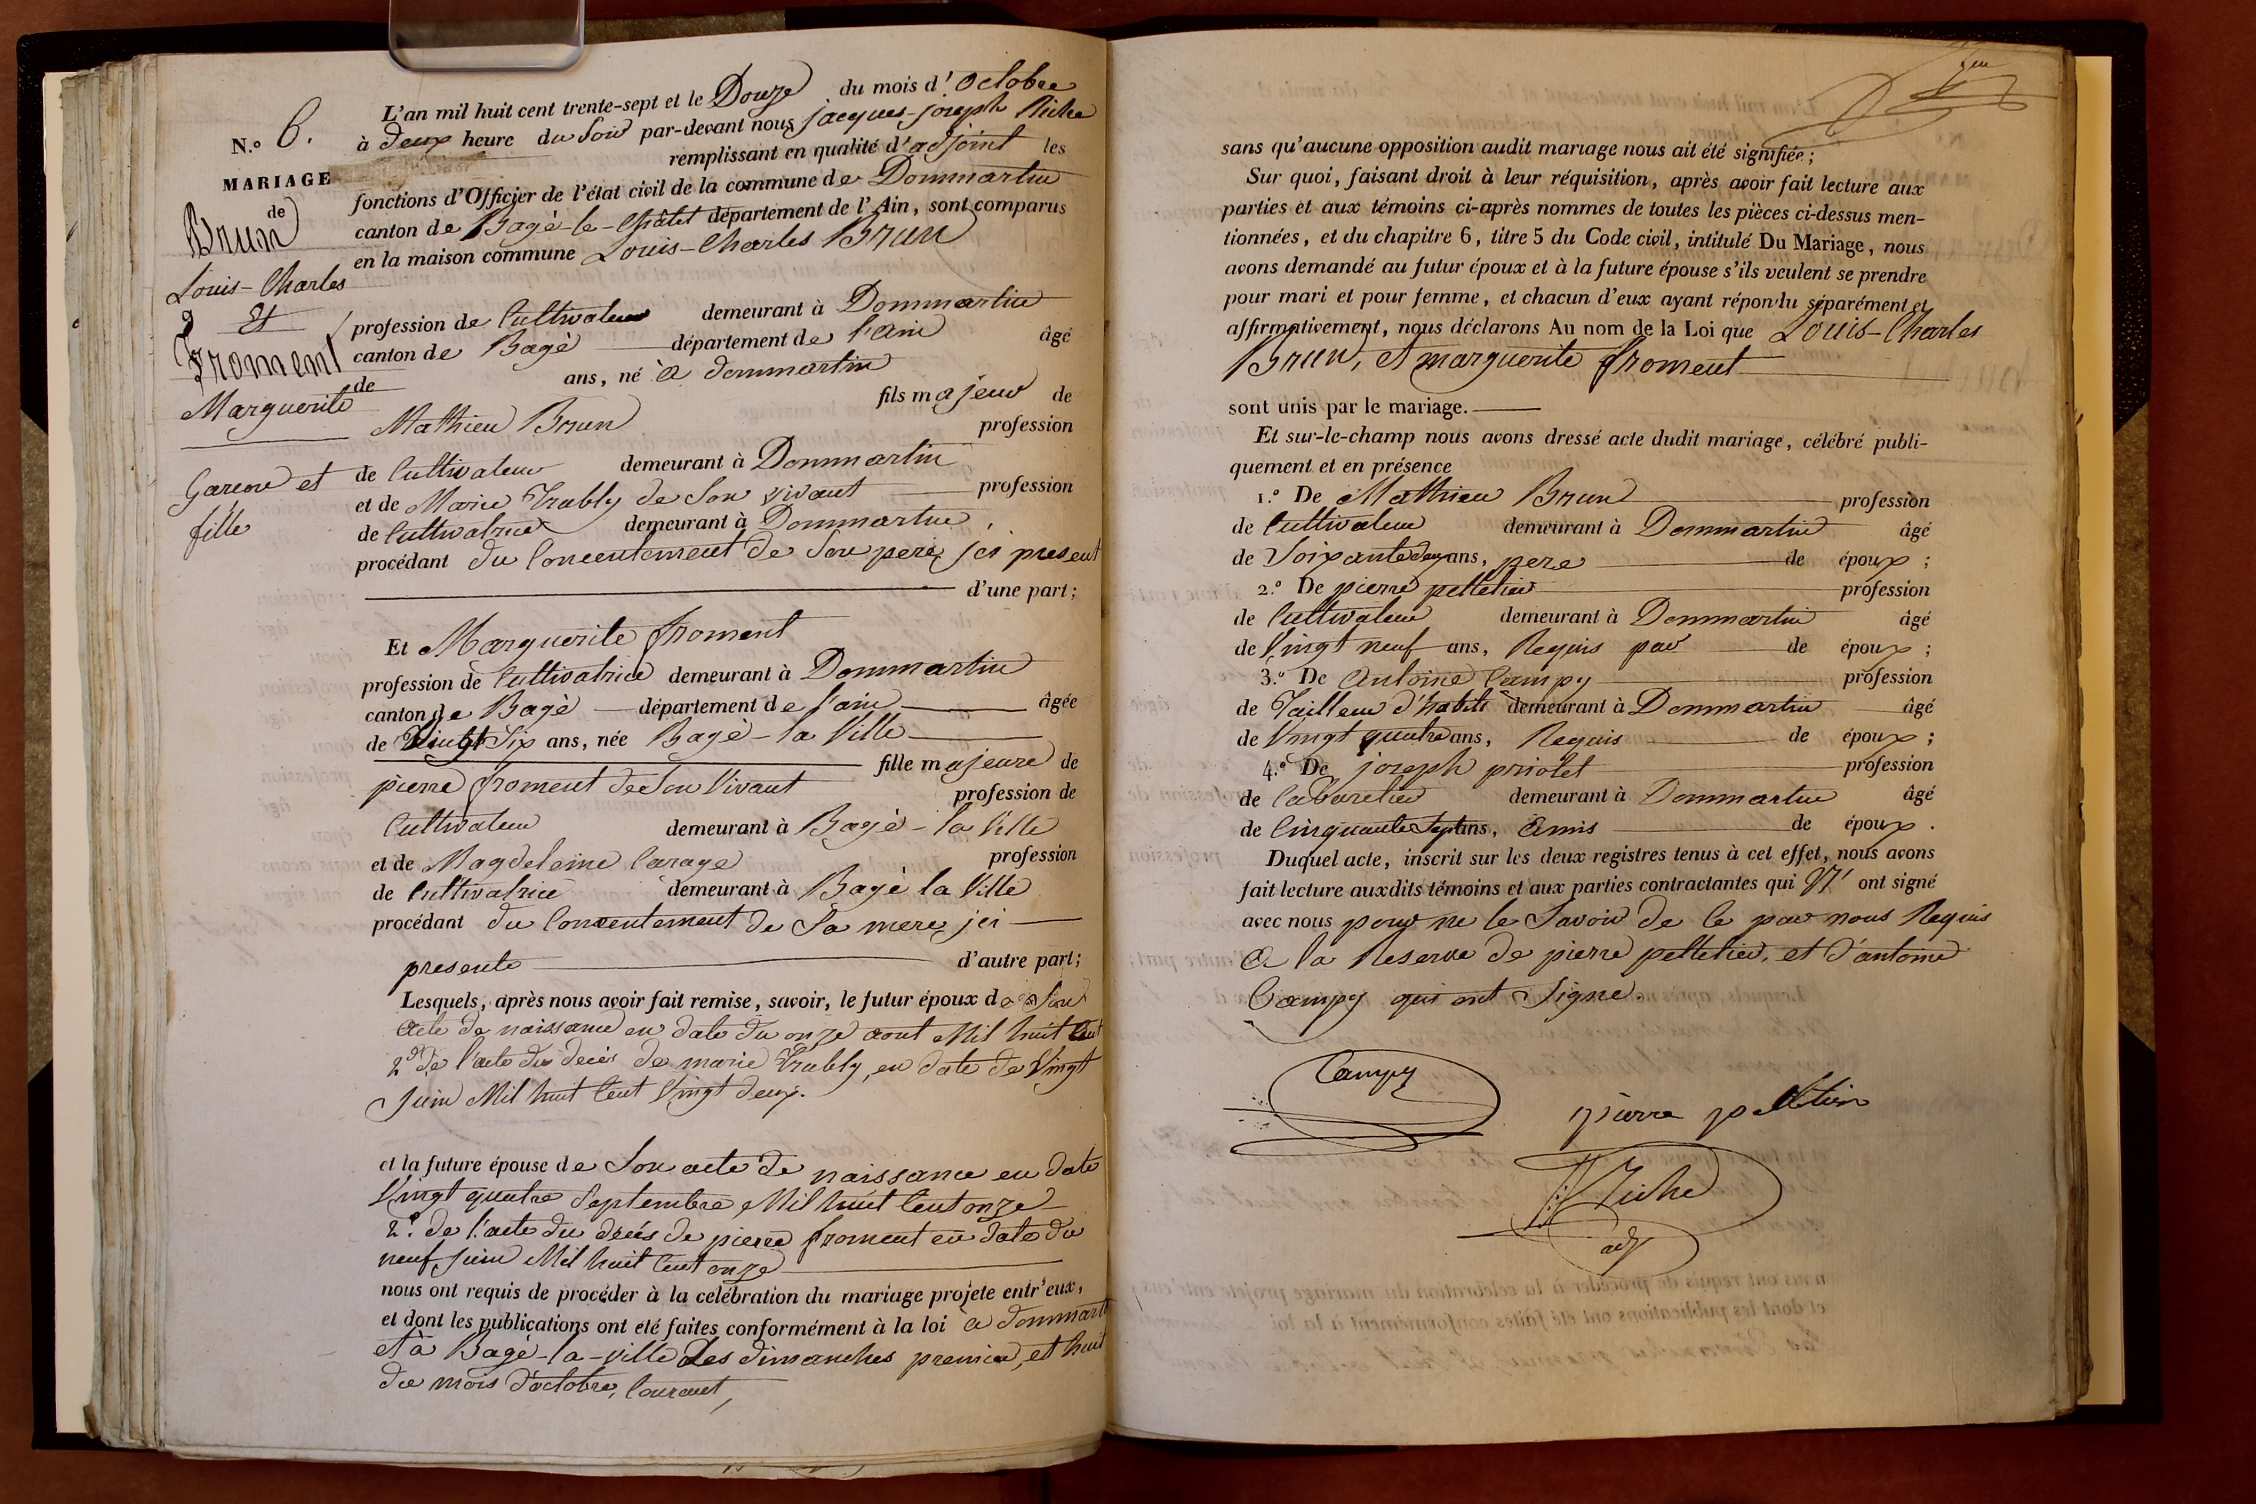 N.º 6.
MARIAGE
de
Brun
Louis-Charles
Et
Froment
de
Marguerite
Garcon et
fille
L'an mil huit cent trente-sept et le Douze du mois d'Octobre
à deux heure du Soir par-devant nous jacques-joseph Riche
remplissant en qualité d'adjoint les
fonctions d'Officier de l'état civil de la commune de Dommartin
canton de Bagé-le-Châtel département de l'Ain, sont comparus
en la maison commune Louis-Charles Brun
profession de Cultivateur demeurant à Dommartin
canton de Bagé département de l'ain âgé
ans, né à dommartin
fils majeur de
Mathieu Brun profession
de Cultivateur demeurant à Dommartin
et de Marie Trably de Son vivant profession
de Cultivatrice demeurant à Dommartin,
procédant du Concentement de Son pere jci present
d'une part;
Et Marguerite froment
profession de Cultivatrice demeurant à Dommartin
canton de Bagé département de l'ain âgée
de Vingt Six ans, née Bagé-la Ville
fille majeure de
pierre froment de Son Vivant profession de
Cultivateur demeurant à Bagé-la Ville
et de Magdeleine Carage profession
de Cultivatrice demeurant à Bagé la Ville
procédant du Concentement de Sa mere jci
presente d'autre part;
Lesquels, après nous avoir fait remise, savoir, le futur époux de Son
acte de naissance en date du onze aout Mil huit Cent
2º de l'acte du decés de marie Trably, en date de Vingt
Juin Mil huit Cent Vingt deux.
et la future épouse de Son acte de naissance en date
Vingt quatre Septembre Mil huit Cent onze
2.º de l'acte du decés de pierre froment en date du
neuf Juin Mil huit Cent onze
nous ont requis de procéder à la celébration du mariage projete entr'eux,
et dont les publications ont été faites conformément à la loi a dommart
et à Bagé-la-ville Les dimanches premier, et huit
du mois d'octobre, Courant,
sans qu'aucune opposition audit mariage nous ait été signifiée;
Sur quoi, faisant droit à leur réquisition, après avoir fait lecture aux
parties et aux témoins ci-après nommes de toutes les pièces ci-dessus men-
tionnées, et du chapitre 6, titre 5 du Code civil, intitulé Du Mariage, nous
avons demandé au futur époux et à la future épouse s'ils veulent se prendre
pour mari et pour femme, et chacun d'eux ayant répondu séparément et
affirmativement, nous déclarons Au nom de la Loi que Louis-Charles
Brun, et marguerite froment
sont unis par le mariage.
Et sur-le-champ nous avons dressé acte dudit mariage, célébré publi-
quement et en présence
1.º De Mathieu Brun profession
de Cultivateur demeurant à Dommartin âgé
de Soixante deux ans, pere de époux;
2.º De pierre pelletier profession
de Cultivateur demeurant à Dommartin âgé
de Vingt neuf ans, Requis par de époux;
3.º De Antoine Campy profession
de Tailleur d'habits demeurant à Dommartin âgé
de Vingt quatre ans, Requis de époux;
4.º De joseph priolet profession
de Cabaretier demeurant à Dommartin âgé
de Cinquante Sept ans, amis de époux.
Duquel acte, inscrit sur les deux registres tenus à cet effet, nous avons
fait lecture auxdits témoins et aux parties contractantes qui N' ont signé
avec nous pour ne le Savoir de Ce par nous Requis
a la Reserve de pierre pelletier, et d'antoine
Campy qui ont Signe.
Campy
pierre pelletier
Riche
adj